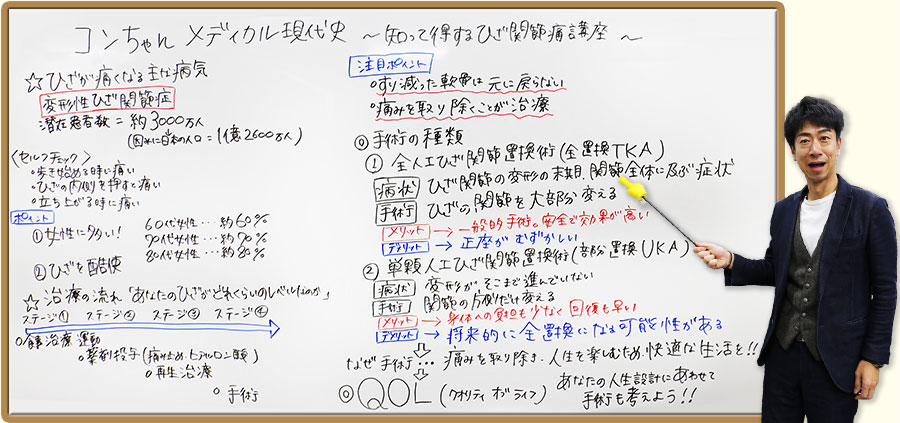 コンちゃん メディカル現代史 ～知って得するひざ関節痛講座～
☆ひざが痛くなる主な病気
変形性ひざ関節症
潜在患者数=約3000万人
(因みに日本の人口=1億2600万人)
〈セルフチェック〉
・歩き始める時に痛い
・ひざの内側を押すと痛い
・立ち上がる時に痛い
ポイント
①女性に多い!
60代女性…約60%
70代女性…約70%
80代女性…約80%
②ひざを酷使
☆治療の流れ「あなたのひざがどれくらいのレベルなのか」
ステージ① ステージ② ステージ③ ステージ④
食事治療 運動
薬剤投与(痛み止め・ヒアルロン酸)
再生治療
手術
注目ポイント
すり減った軟骨は元に戻らない
痛みを取り除くことが治療
◎手術の種類
① 全人工ひざ関節置換術(全置換TKA)
病状 ひざ関節の変形の末期、関節全体に及ぶ症状
手術 ひざの関節を大部分変える
メリット→一般的手術。安全で効果が高い
デメリット→正座がむずかしい
② 単顆人工ひざ関節置換術(部分置換UKA)
病状 変形が、そこまで進んでいない
手術 関節の片側だけ変える
メリット→身体への負担も少なく回復も早い
デメリット→将来的に全置換になる可能性がある
なぜ手術…痛みを取り除き、人生を楽しむため、快適な生活を!!
◎QOL(クオリティ オブ ライフ)
あなたの人生設計にあわせて
手術も考えよう!!